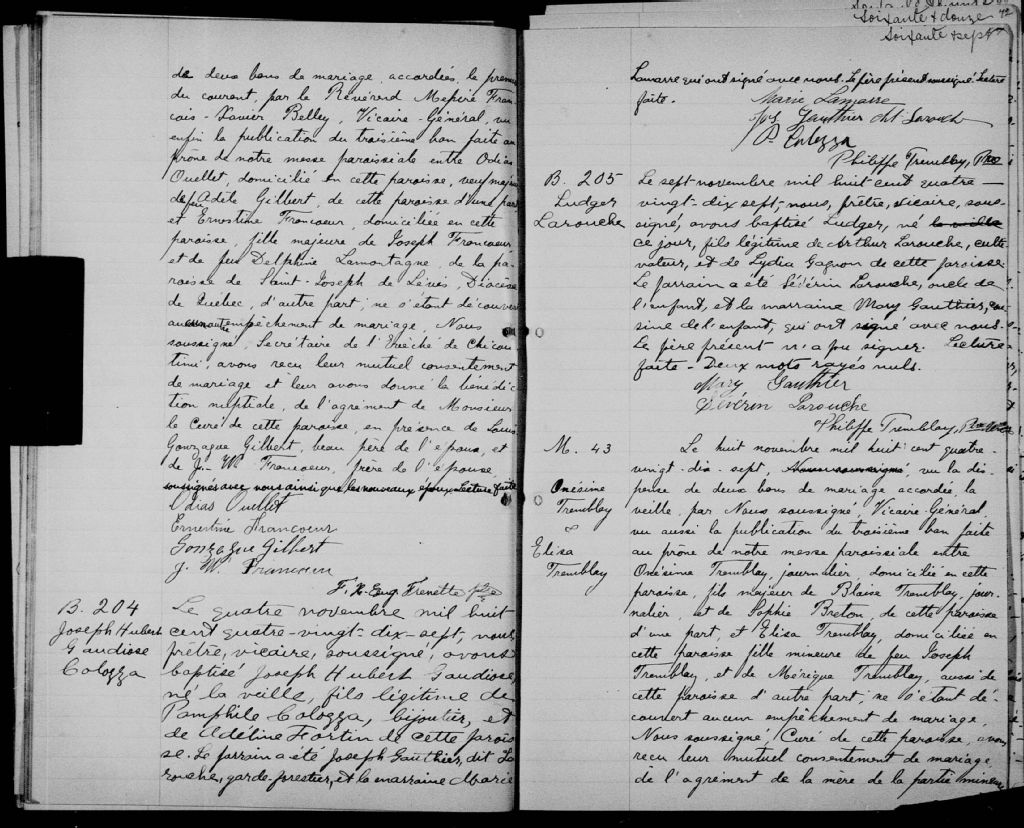 de deux bans de mariage accordée, le premier
du courant, par le Révérend Messire Fran-
çois-Xavier Belley, Vicaire-Général, vu
enfin la publication du troisième ban faite au
prône de notre messe paroissiale entre Odias
Ouellet, domicilié en cette paroisse, veuf majeur
de feu Adèle Gilbert, de cette paroisse d'une part
et Ernestine Francoeur, domiciliée en cette
paroisse, fille majeure de Joseph Francoeur
et de feu Delphine Lamontagne, de la pa-
roisse de Saint-Joseph de Lévis, Diocèse
de Québec, d'autre part, ne s'étant découvert
aucun empêchement de mariage, Nous
soussigné, Secrétaire de l'Evêché de Chicou-
timi, avons reçu leur mutuel consentement
de mariage et leur avons donné la bénédic-
tion nuptiale, de l'agrément de Monsieur
le Curé de cette paroisse, en présence de Louis
Gonzague Gilbert, beau père de l'époux, et
de Jn- W. Francoeur, frère de l'épouse
soussignés avec nous ainsi que les nouveaux époux. Lecture faite
Odias Ouellet
Ernestine Francoeur
Gonzague Gilbert
J. W. Francoeur
F. X. Eug. Frenette ptre
B. 204
Joseph Hubert
Gaudiose
Colozza
Le quatre novembre mil huit
cent quatre-vingt-dix-sept, nous
prêtre, vicaire, soussigné, avons
baptisé Joseph Hubert Gaudiose,
né la veille, fils légitime de
Pamphile Colozza, bijoutier, et
de Adéline Fortin de cette parois-
se. Le parrain a été Joseph Gauthier, dit La
rouche, garde-forestier, et la marraine Marie
42
Soixante & douze
Soixante & sept
Lamarre qui ont signé avec nous. Le père présent soussigné. Lecture
faite.
Marie Lamarre
Jos Gauthier dit Larouche
P. Colozza
Philippe Tremblay, Ptre
B. 205
Ludger
Larouche
Le sept novembre mil huit cent quatre-
vingt-dix sept, nous, prêtre, vicaire, sous-
signé, avons baptisé Ludger, né la veille
ce jour, fils légitime de Arthur Larouche, culti
vateur, et de Lydia Gagnon de cette paroisse.
Le parrain a été Sévérin Larouche, oncle de
l'enfant, et la marraine Mary Gauthier, cou-
sine de l'enfant, qui ont signé avec nous.
Le père présent n'a pu signer. Lecture
faite - Deux mots rayés nuls.
Mary Gauthier
Sévérin Larouche
Philippe Tremblay, Ptre Vic
M. 43
Onésime
Tremblay
&
Elisa
Tremblay
Le huit novembre mil huit cent quatre-
vingt-dix-sept, Nous soussigné, vu la dis-
pense de deux bans de mariage accordée, la
veille, par Nous soussigné, Vicaire-Général,
vu aussi la publication du troisième ban faite
au prône de notre messe paroissiale entre
Onésime Tremblay, journalier, domicilié en cette
paroisse, fils majeur de Blaise Tremblay, jour-
nalier, et de Sophie Breton, de cette paroisse
d'une part, et Elisa Tremblay, domiciliée en
cette paroisse fille mineure de feu Joseph
Tremblay, et de Mérique Tremblay, aussi de
cette paroisse d'autre part, ne s'étant dé-
couvert aucun empêchement de mariage,
Nous soussigné, Curé de cette paroisse, avons
reçu leur mutuel consentement de mariage
de l'agrément de la mère de la partie mineure